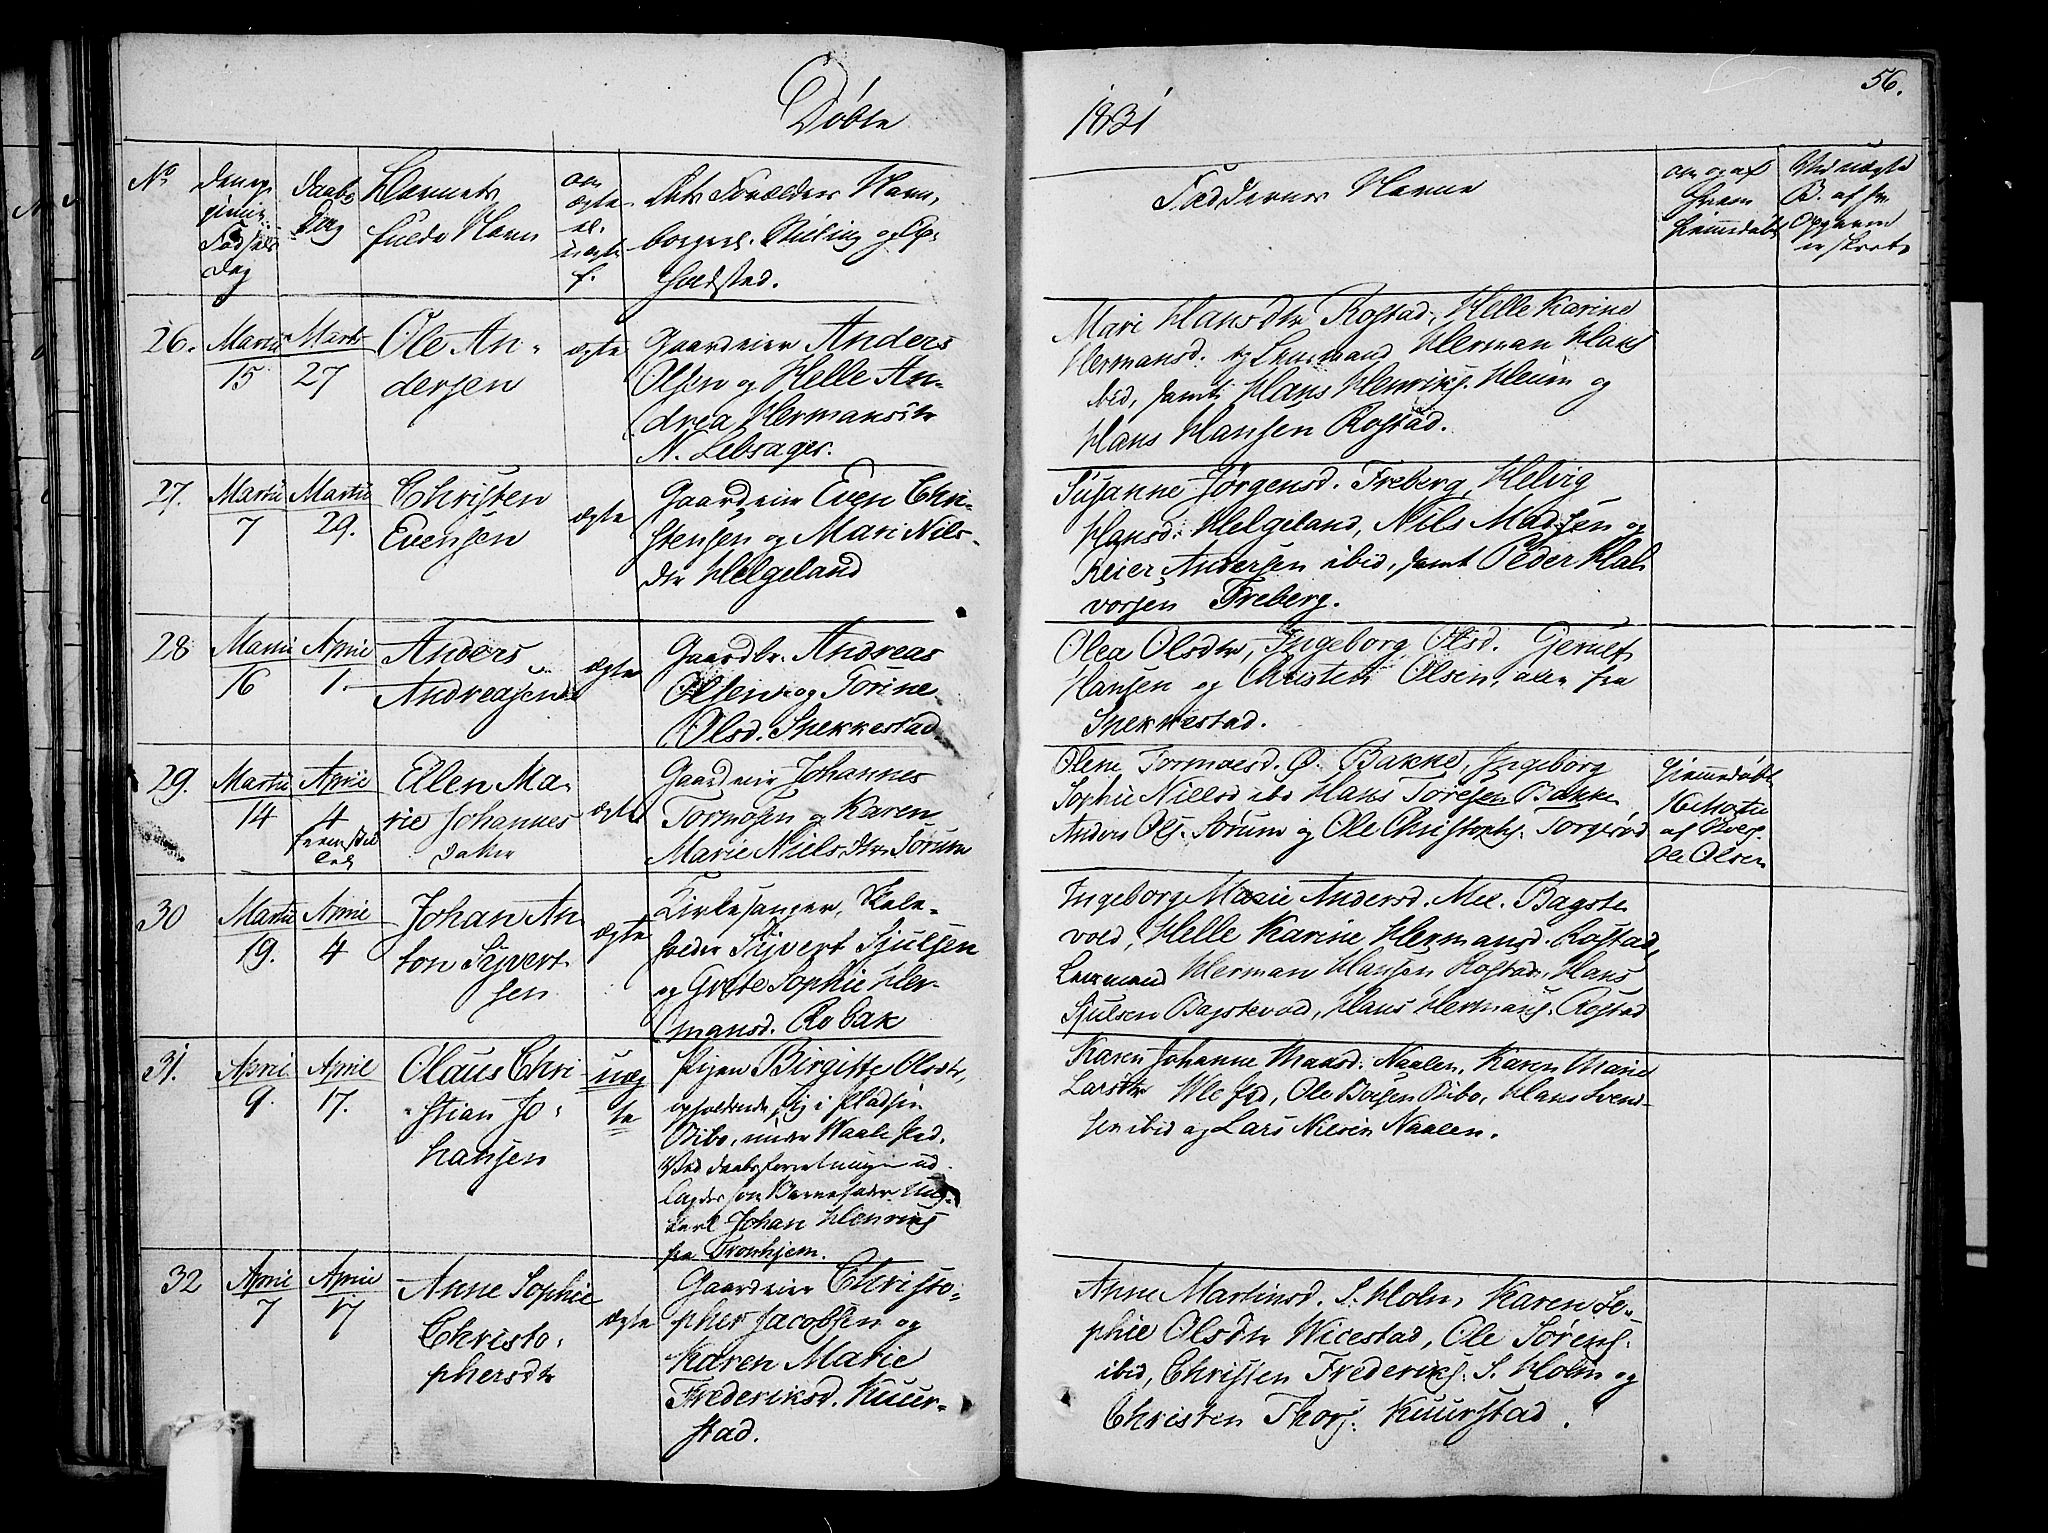 Döbte
1831
56.
No
Dag
Daabs
Dag
Barnets
fulde Navn
om
ægte
el.
uægte
f.
Dets Forældres Navn,
borgerl. Stilling og Op-
holdsted.
Faddernes Navne
om og af
hvem
hiemmedöbt
Ved uægte
B. af
er skreet
26.
Martii
15
Martii
27
Ole An-
dersen
ægte
Gaardeier Anders
Olsen og Helle An-
drea Hermansdtr
N. Lebsager.
Mari Hansdtr Rostad, Helle Karine
Hermansd. og Lensmand Herman Hans
ibid, samt Hans Henriks. Heum og
Hans Hansen Rostad.
27.
Martii
7
Martii
29.
Christen
Evensen
ægte
Gaardeier Even Chri-
stensen og Mari Nils-
dtr Helgeland
Susanne Jörgensd. Freberg, Helvig
Hansd. Helgeland, Nils Madsen og
Reier Andersen ibid, samt Peder Hal-
vorsen Freberg.
28
Martii
16
April
1.
Anders
Andreasen
ægte
Gaardbr. Andreas
Olsen og Torine
Olsd. Skekkestad
Olea Olsdtr, Ingeborg Olsd. Gerult
Hansen og Christen Olsen, alle fra
Skekkestad.
29.
Martii
14
April
4
Ellen Ma-
rie Johannes
datter
ægte
Gaardeier Johannes
Tormosen og Karen
Marie Nielsdtr Sörum
Olene Tormoesd. Ø. Bakke, Ingeborg
Sophie Nielsd ibd Hans Toresen Bakke
Anders Ols. Sörum og Ole Christophs. Torgeröd
hiemmedöbt
16 Martii
af
Ole Olsen
30
Martii
19.
April
4
Johan An-
ton Syvert-
sen
ægte
Kirkesanger, Skole-
holder Syvert Sjulsen
og Grete Sophie Her-
mansd. Robak
Ingeborg Marie Andersd. Mel. Bagste
vold, Helle Karine Hermansd. Rostad,
Lensmand Herman Hansen Rostad, Hans
Sjulsen Bagstevold, Hans Hermans. Rostad
31.
April
9.
April
17.
Olaus Chri-
stian Jo-
hansen
uæg
te
Pigen Birgitte Olsdtr,
opholdende sig i Pladsen
Bibo, under Waale Præd.
Ved Daabsforretningen ud-
lagdes som Barnefader Ung-
karl Johan Henriks
fra Tronhjem.
Karen Johanne Maasd. Naalen, Karen Marie
Larsdtr Wle Præd, Ole Boesen Bibo, Hans Svend-
sen ibid og Lars Nilsen Naalen.
32
April
7
April
17
Anne Sophie
Christo-
phersdtr
ægte
Gaardeier Christo-
pher Jacobsen og
Karen Marie
Frederiksd. Kuur-
stad.
Anne Martinsd. S. Holm, Karen So-
phie Olsdtr Wicestad, Ole Sörens.
ibid, Christen Frederiks. S. Holm og
Christen Thors. Kuurstad.